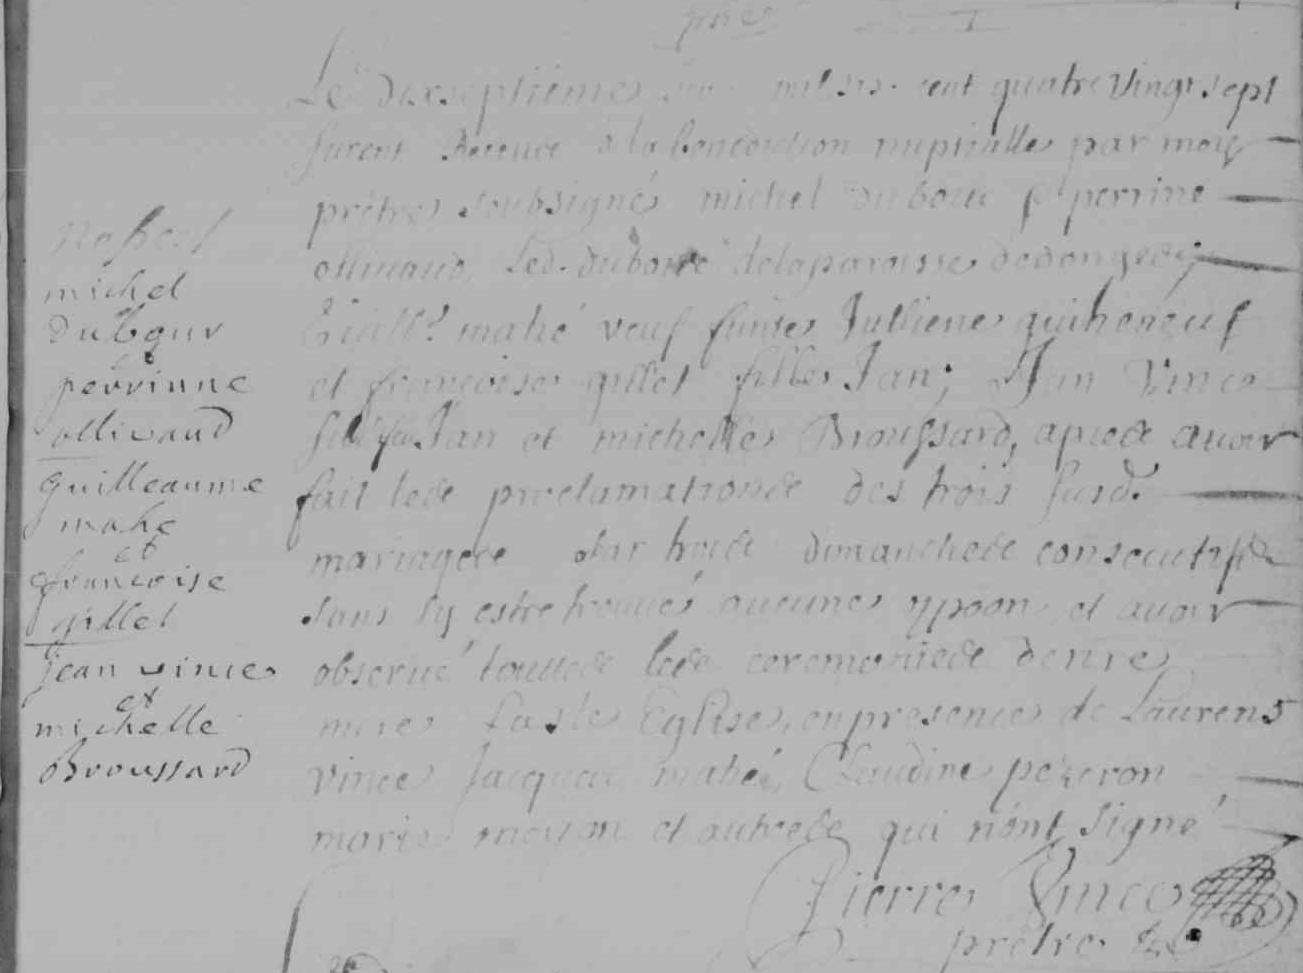 Le dixseptieme mil six cent quatre vingt sept
furent à la benediction nuptialle par moy
prêtre soubsigné michel dubour & perrine
ollivaud, led. dubour de la paroisse de donges
Guill. mahé veuf Jullienne guiheneuf
et françoise gillet fille Jan; Jan Vince
fils Jan et michelle Broussard, apres avoir
fait les proclamations des trois susd.
mariages par trois dimanches consecutifs
sans s'y estre trouvé aucune et avoir
observé touttes les ceremonies de nre
mere Eglise, en presence de Laurens
vince Jacques mahé, Claudine
marie moyon et autres qui n'ont signé
Pierre Vince
prêtre
michel
dubour
et
perrinne
ollivaud
guilleaume
mahe
et
francoise
gillet
jean vince
et
michelle
Broussard